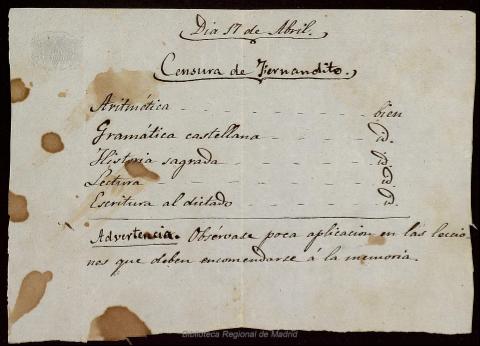 Dia 17 de Abril.
Censura de Fernandito.
Aritmética - - - - - - - - bien
Gramática castellana - - - - - id.
Historia sagrada - - - - - - id.
Lectura - - - - - - - - id.
Escritura al dictado - - - - - - id.
Advertencia. Obsérvase poca aplicacion en las leccio-
nes que deben encomendarse á la memoria.
Biblioteca Regional de Madrid